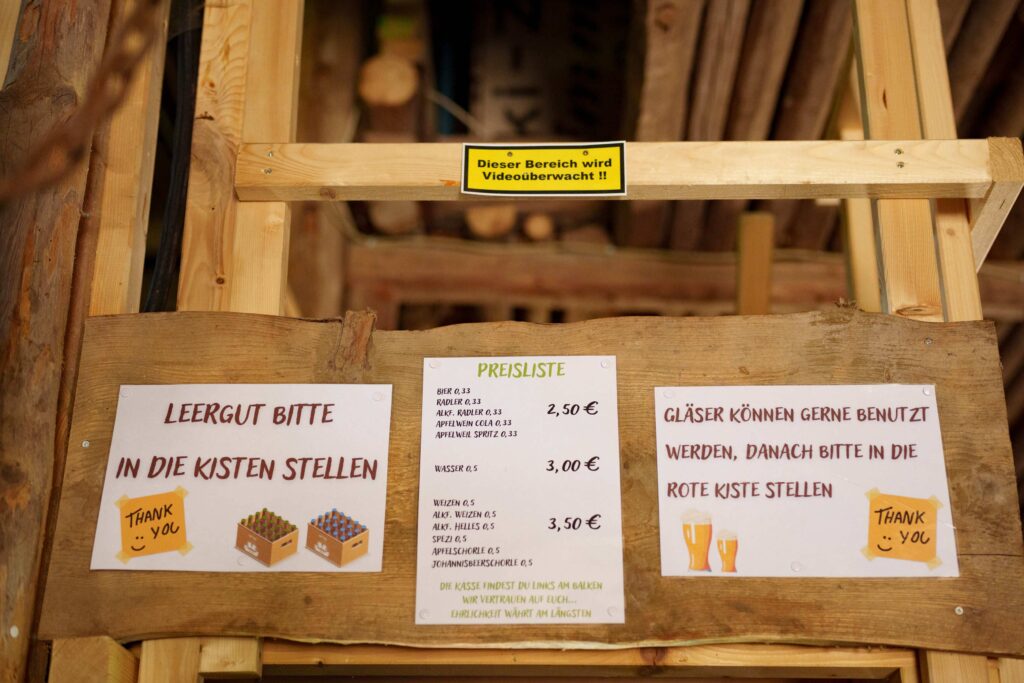 Dieser Bereich wird
Videoüberwacht !!
LEERGUT BITTE
IN DIE KISTEN STELLEN
THANK
YOU
PREISLISTE
BIER 0,33
RADLER 0,33
ALKF. RADLER 0,33
APFELWEIN COLA 0,33
APFELWEIL SPRITZ 0,33
2,50 €
WASSER 0,5
3,00 €
WEIZEN 0,5
ALKF. WEIZEN 0,5
ALKF. HELLES 0,5
SPEZI 0,5
APFELSCHORLE 0,5
JOHANNISBEERSCHORLE 0,5
3,50 €
DIE KASSE FINDEST DU LINKS AM BALKEN
WIR VERTRAUEN AUF EUCH...
EHRLICHKEIT WÄHRT AM LÄNGSTEN
GLÄSER KÖNNEN GERNE BENUTZT
WERDEN, DANACH BITTE IN DIE
ROTE KISTE STELLEN
THANK
YOU